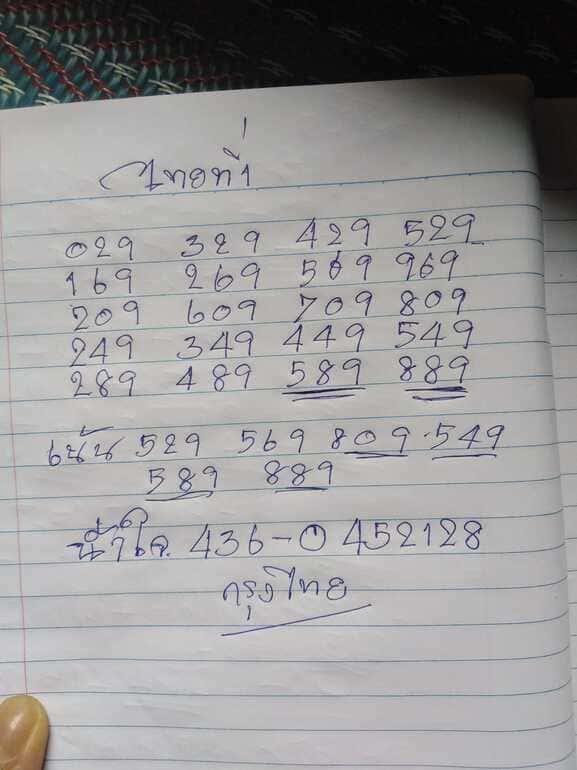 ไทยที่1
029 329 429 529
169 269 569 969
209 609 709 809
249 349 449 549
289 489 589 889
เน้น 529 569 809.549
589 889
น้ำใจ. 436-0452128
กรุงไทย